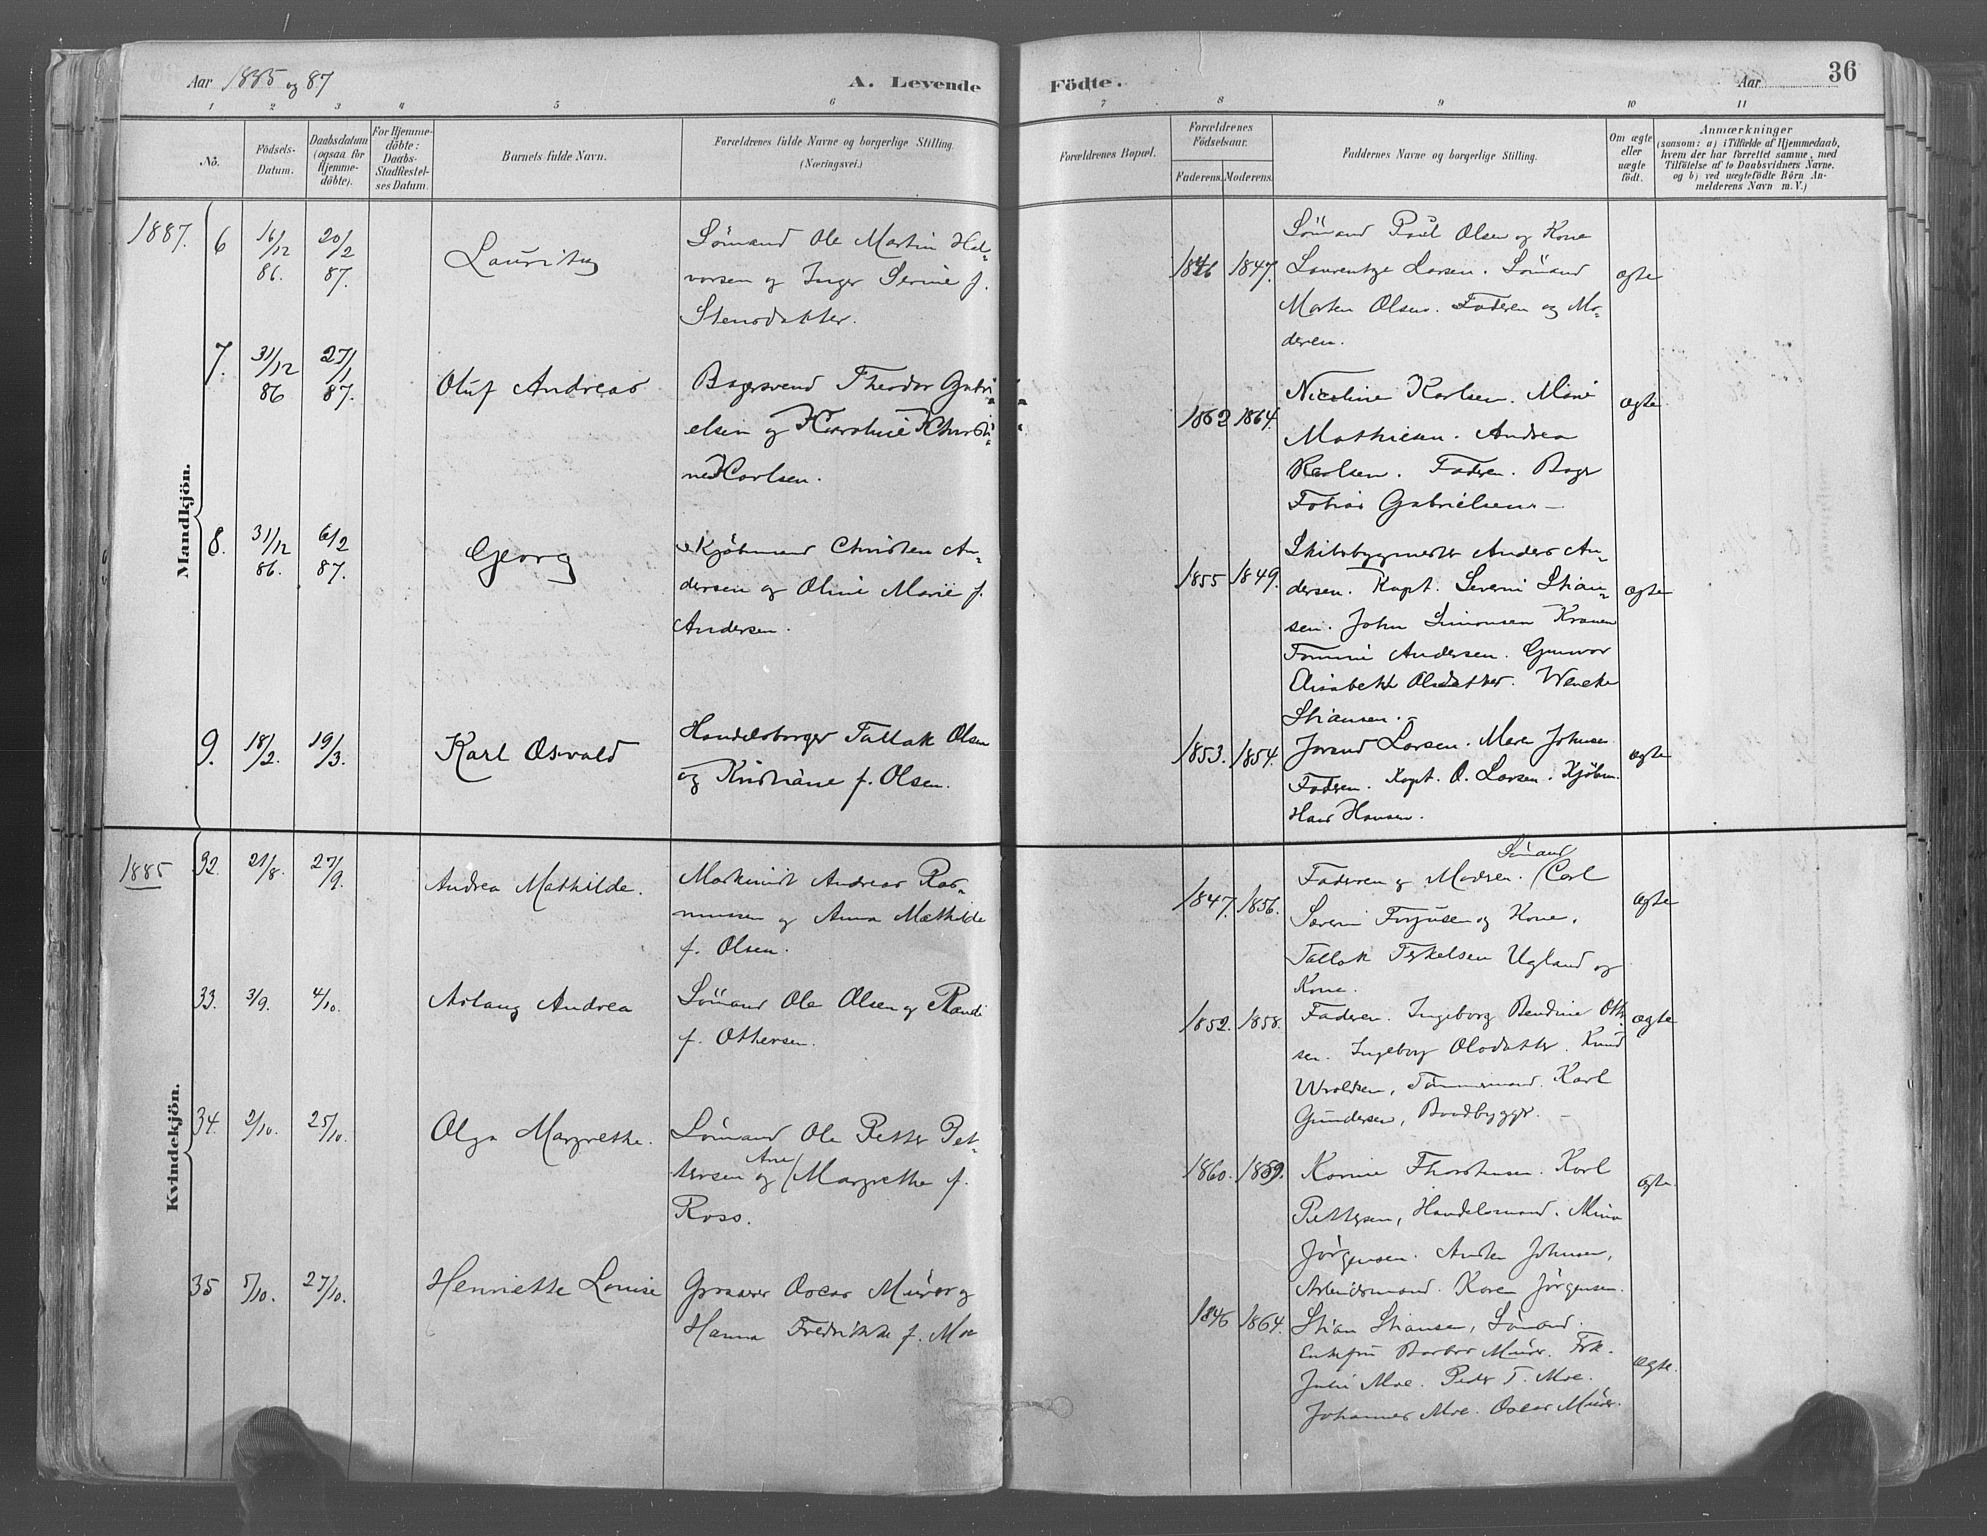 Aar 1885 og 87
A. Levende Födte.
Aar
36
1 2 3 4 5 6 7 8 9 10 11
No.
Födsels-Datum.
Daabsdatum (ogsaa for Hjemme-döbte).
For Hjemme-döbte: Daabs-Stadfæstel-ses Datum.
Barnets fulde Navn.
Forældrenes fulde Navne og borgerlige Stilling.
(Næringsvei.)
Forældrenes Bopæl.
Forældrenes Födselsaar.
Faderens. Moderens.
Faddernes Navne og borgerlige Stilling.
Om ægte eller uægte födt.
Anmærkninger
(saasom: a) i Tilfælde af Hjemmedaab,
hvem der har forrettet samme, med
Tilföielse af to Daabsvidners Navne,
og b) ved uægtefödte Börn An-
melderens Navn m.V.)
Mandkjön.
1887. 6 16/12 86. 20/2 87. Lauritz
Sömand Ole Martin Hal-
vorsen og Inger Serine f.
Stensdatter.
1846 1847.
Sömand Paul Olsen og Kone
Laurentze Larsen. Sömand
Morten Olsen. Faderen og Mo-
deren.
ægte
7. 31/12 86 27/1 87. Oluf Andreas
Bagersvend Theodor Gabri-
elsen og Karoline Christi-
ne Karlsen.
1862 1864.
Nicoline Karlsen. Marie
Mathiesen. Andrea
Karlsen. Faderen. Bager
Tobias Gabrielsen
ægte
8. 31/12 86. 6/2 87. Georg
Kjöbmand Christen An-
dersen og Oline Marie f.
Andersen.
1855 1849.
Skibsbygmester Anders An-
dersen. Kapt. Severin Stian-
sen. John Simonsen
Tomine Andersen. Gunvor
Elisabeth Olsdatter. Wencke
Stiansen.
ægte
9. 18/2. 19/3. Karl Osvald
Handelsborger Tallak Olsen
og Kristiane f. Olsen.
1853. 1854.
Larsen. Maren Johnsen
Faderen. Kapt. O. Larsen. Kjöbm.
Hans Hansen.
ægte
Kvindekjön.
1885 32. 21/8. 27/9. Andrea Mathilde.
Andreas Ras-
mussen og Anna Mathilde
f. Olsen.
1847. 1856.
Sömand
Faderen og Moderen. Carl
Severin og Kone.
Tallak Terkelsen Ugland og
Kone.
ægte
33. 3/9. 4/10. Aslaug Andrea
Sömand Ole Olsen og Randi
f. Ottersen.
1852. 1858.
Faderen. Ingeborg Bendine Otter-
sen. Ingeborg Olsdatter. Knud
Wroldsen, Tömmermand. Karl
Gundersen, Baadbygger.
ægte
34. 2/10. 25/10. Olga Margrethe.
Sömand Ole Petter Pet-
tersen og Ane Margrethe f.
Ross.
1860. 1859.
Karine Thorstensen. Karl
Pettersen, Handelsmand. Mina
Jörgensen. Johnsen,
Arbeidsmand. Karen Jörgensen.
ægte.
35 5/10. 27/10. Henriette Louise
Oscar Mürer og
Hanna Fredrikke f. Moe
1846 1864.
Stian Stiansen, Sömand.
Enkefru Barbro Mürer. Frk.
Julie Moe. Peder T. Moe.
Johannes Moe. Oscar Mürer.
ægte.